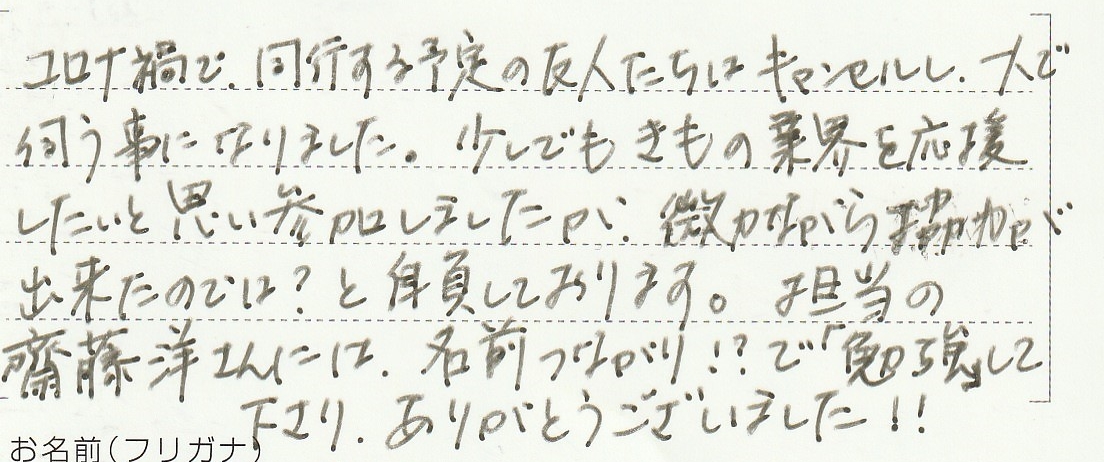 コロナ禍で、同行する予定の友人たちはキャンセルし、一人で
伺う事になりました。少しでもきもの業界を応援
したいと思い参加しましたが、微力ながら協力が
出来たのでは？と自負しております。担当の
齋藤洋さんには、名前つながり!?で「勉強」して
下さり、ありがとうございました!!
お名前(フリガナ)